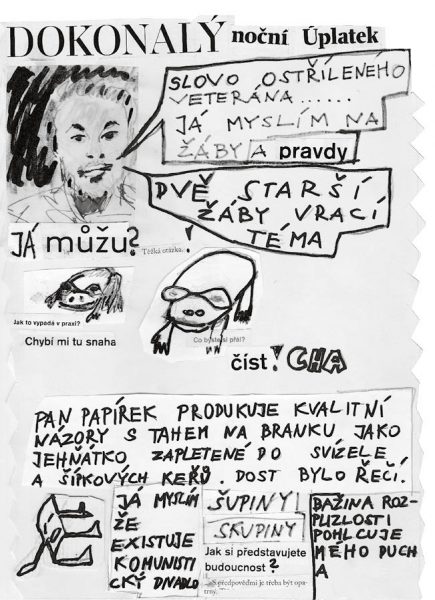 DOKONALÝ noční Úplatek
SLOVO OSTŘÍLENÉHO
VETERÁNA......
JÁ MYSLÍM NA
ŽÁBY A pravdy
DVĚ STARŠÍ
ŽÁBY VRACÍ
TÉMA
JÁ můžu?
Těžká otázka.
!
Jak to vypadá v praxi?
Chybí mi tu snaha
Co byste si přál?
číst! CHA
PAN PAPÍREK PRODUKUJE KVALITNÍ
NÁZORY S TAHEM NA BRANKU JAKO
JEHŇÁTKO ZAPLETENÉ DO SVÍZELE
A ŠÍPKOVÝCH KEŘŮ. DOST BYLO ŘEČÍ.
JÁ MYSLÍM
ŽE
EXISTUJE
KOMUNISTI
CKÝ DIVADLO
ŠUPINY!
SKUPINY
Jak si představujete
budoucnost?
S předpověďmi je třeba být opa-
trný.
BAŽINA ROZ-
PLIZLOSTI
POHLCUJE
MÉHO DUCH
A